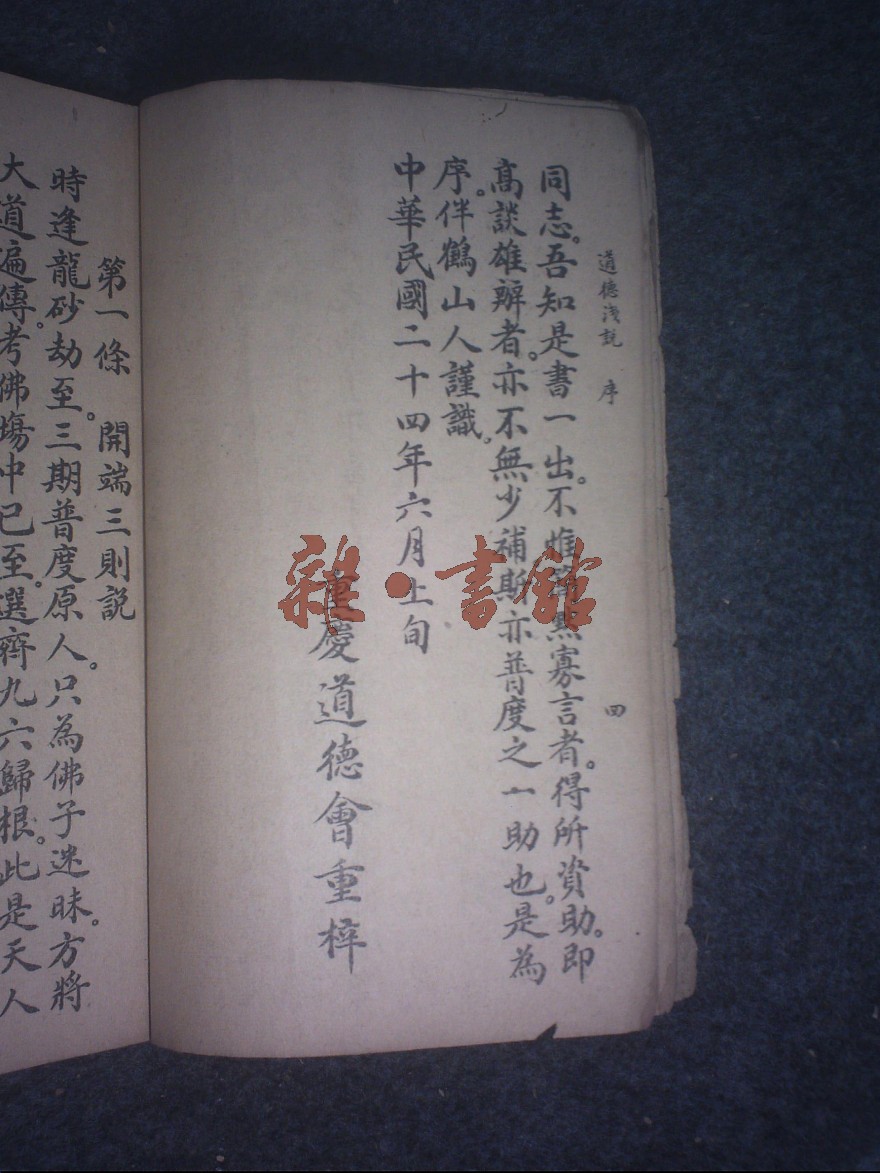 道德淺説 序 四
同志。吾知是書一出。不惟 默寡言者。得所資助。即
高談雄辯者。亦不無少補。斯亦普度之一助也。是為
序。伴鶴山人謹識。
中華民國二十四年六月上旬
重慶道德會重梓
第一條 開端三則説
時逢龍砂劫至。三期普度原人。只為佛子迷昧。方將
大道遍傳。考佛塲中已至。選齊九六歸根。此是天人
雜·書館